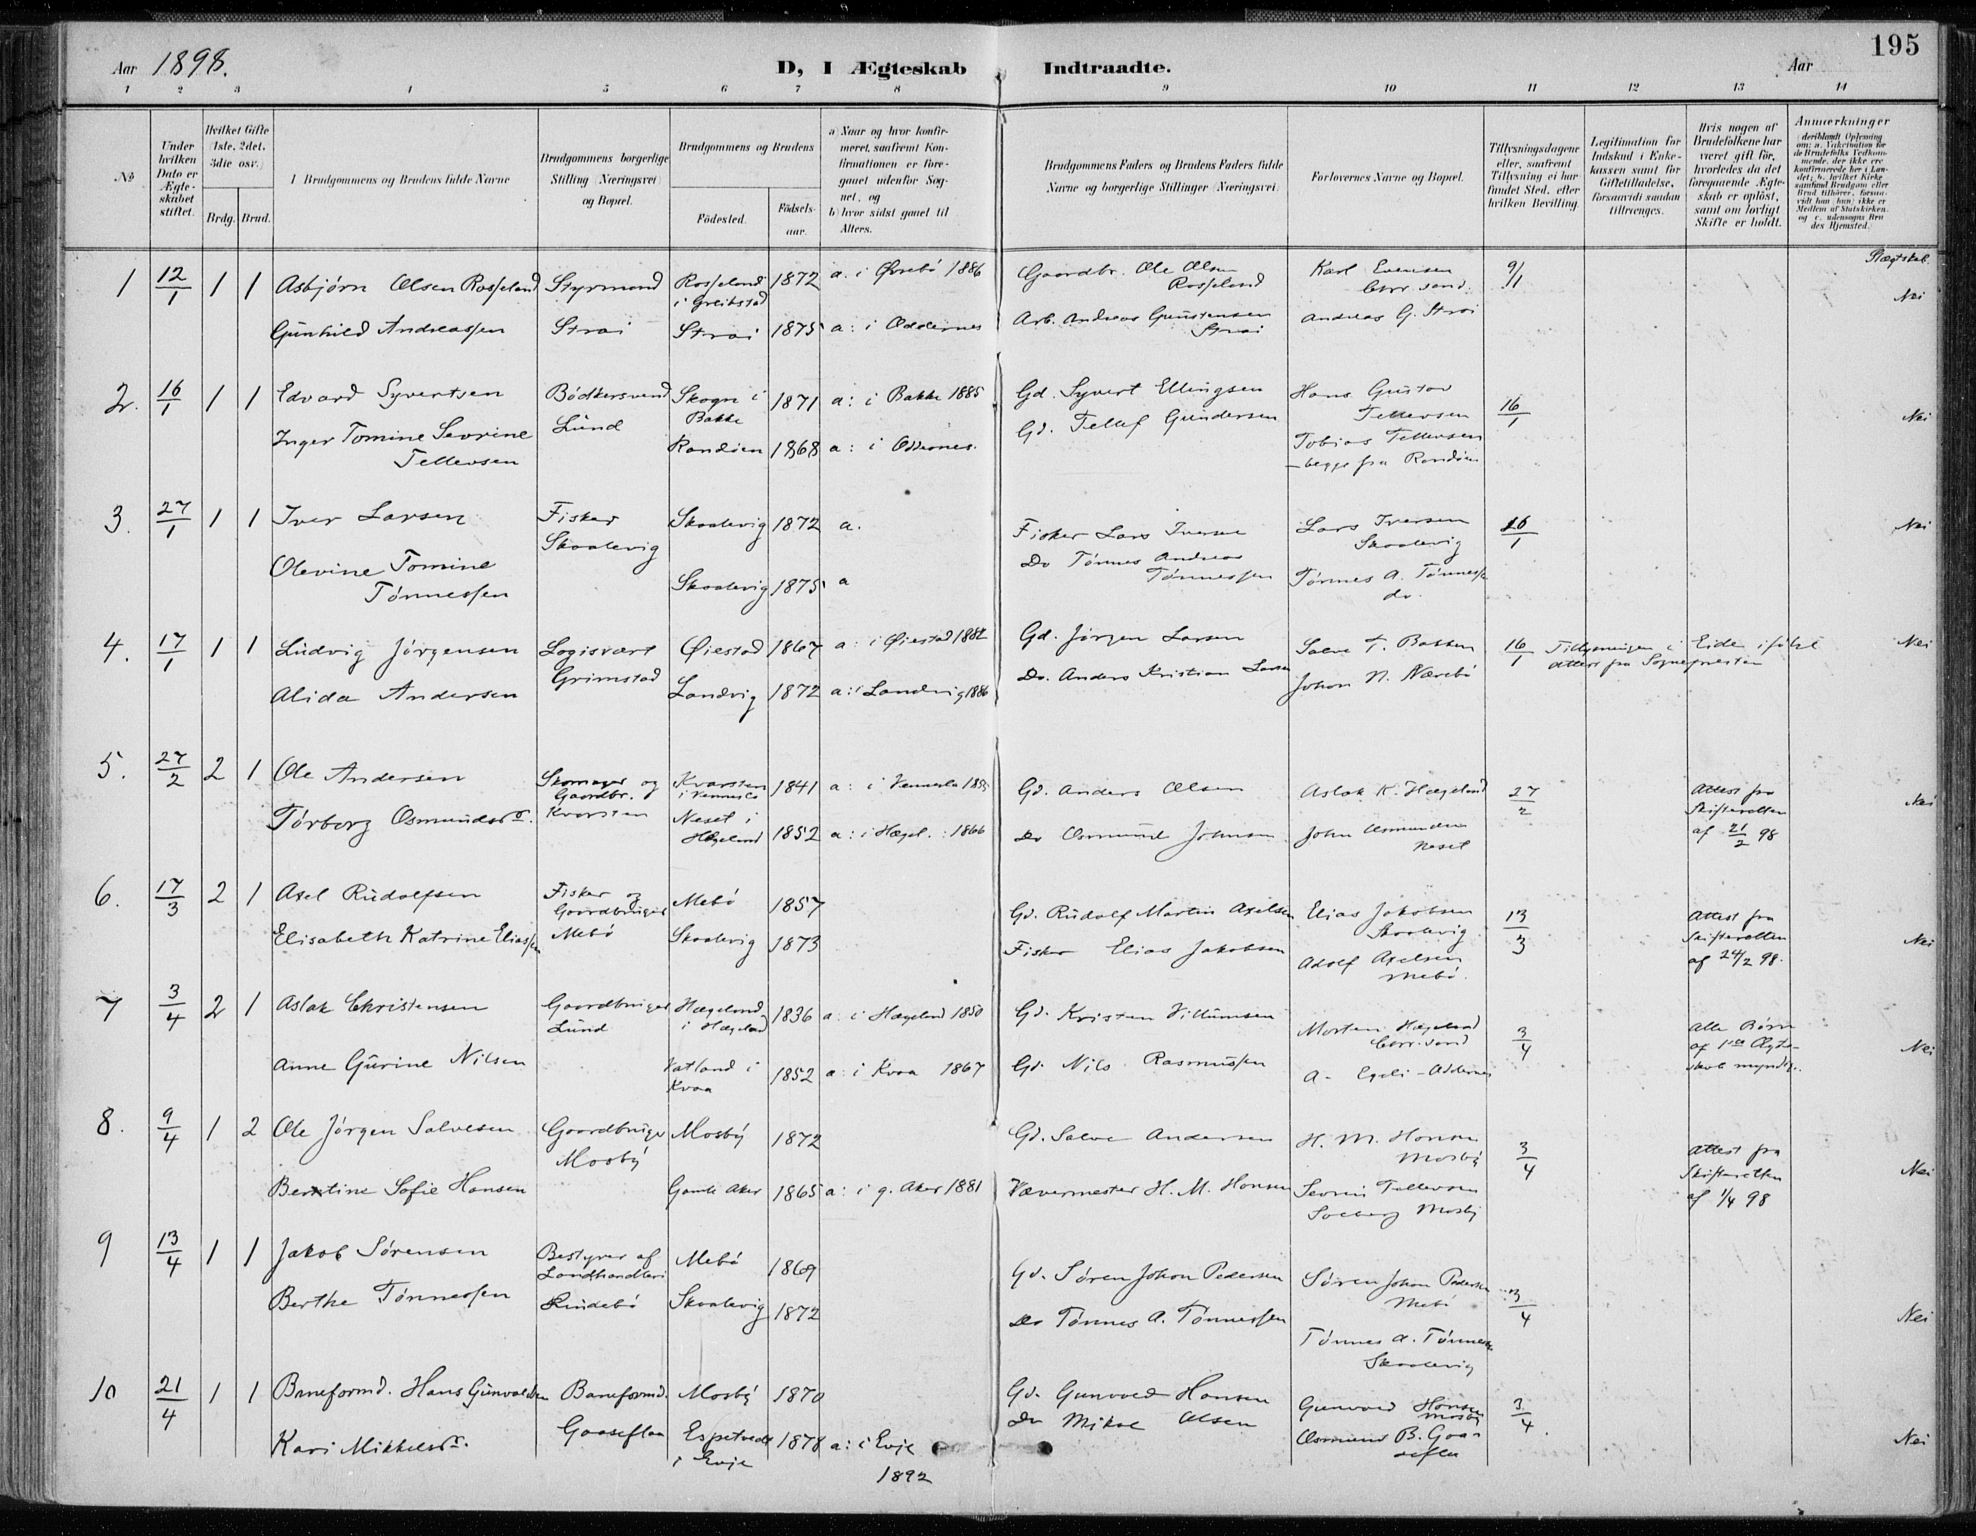 195
Aar 1898.
D, I Ægteskab Indtraadte.
Aar
1 2 3 4 5 6 7 8 9 10 11 12 13 14
No
Under hvilken Dato er Ægteskabet stiftet.
Hvilket Gifte 1ste, 2det, 3die osv.)
Brdg. Brud.
Brudgommens og Brudens fulde Navne
Brudgommens borgerlige Stilling (Næringsvei) og Bopæl.
Brudgommens og Brudens
Födested.
Födselsaar.
a) Naar og hvor konfirmeret, samfremt Konfirmationen er foregaaet udenfor Sognet, og
b) hvor sidst gaaet til Alters.
Brudgommens Faders og Brudens Faders fulde Navne og borgerlige Stillinger (Næringsvei)
Forlovernes Navne og Bopæl.
Tillysningsdagene eller, samfremt Tillysning ei har fundet Sted, efter hvilken Bevilling.
Legitimation for Indskud i Enkekassen samt for Giftetilladelse, forsaavidt saadan tiltrænges.
Hvis nogen af Brudefolkene har været gift för, hvorledes da det foregaaende Ægteskab er oplöst, samt om lovligt Skifte er holdt.
Anmærkninger
Slægtskab.
1 12/1 1 1 Asbjørn Olsen Rosseland Styrmand Rosseland i Greibstad 1872 a. i Øvrebö 1886 Gaardbr. Ole Olsen Rosseland Karl Evensen Chr.sand. 9/1 Nei
Gunhild Andreassen Strai Strai 1875 a: i Oddernes Arb. Andreas Gunstensen Strai Andreas G. Strai
2. 16/1 1 1 Edvard Syvertsen Bödkersvend Lund Skogn i Bakke 1871 a: i Bakke 1885 Gd. Syvert Ellingsen Hans Gustav Tellevsen 16/1 Nei
Inger Tomine Sevrine Tellevsen Randöen 1868 a: i Oddernes. Gd. Tellef Gundersen Tobias Tellevsen – begge fra Randöen
3. 27/1 1 1 Iver Larsen Fisker Skaalevig Skaalevig 1872 a. Fisker Lars Iversen Lars Iversen Skaalevig 16/1 Nei
Olevine Tomine Tönnessen Skaalevig 1875 a Do Tönnes Andreas Tönnessen Tönnes A. Tönnessen do.
4. 17/1 1 1 Ludvig Jörgensen Logisvært Grimstad Øiestad 1867 a: i Øiestad 1882 Gd. Jörgen Larsen Salve T. Bakken 16/1 Tillysningen i Eide ifölge attest fra Sognepresten Nei
Alida Andersen Landvig 1872 a: i Landvig 1886 Do. Anders Kristian Larsen Johan N. Nærebö
5. 27/2 2 1 Ole Andersen Skomager og Gaardbr. Kvarsten Kvarsten i Vennesla 1841 a: i Vennesla Gd. Anders Olsen Aslak K. Hægeland 27/2 Attest fra Skifteretten af 21/2 98 Nei
Törborg Osmundsdr. Neset i Hægeland 1852 a: i Hægel. : 1866 Do Osmund Johnsen John Osmundsen Neset
6. 17/3 2 1 Axel Rudolfsen Fisker og Gaardbruger Mebö Mebö 1857 Gd. Rudolf Martin Axelsen Elias Jakobsen Skaalevig 13/3 Attest fra Skifteretten af 24/2 98. Nei
Elisabeth Katrine Eliassen Skaalevig 1873 Fisker Elias Jakobsen Adolf Axelsen Mebö.
7 3/4 2 1 Aslak Christensen Gaardbruger Lund Hægeland i Hægeland 1836 a: i Hægeland 1850 Gd. Kristen Villumsen Morten Hægeland Chr.sand 3/4 Alle Börn af 1ste Ægteskab myndig. Nei
Anne Gurine Nilsen Vatland i Kvaa 1852 a: i Kvaa 1867 Gd. Nils Rasmussen A. Egeli – Oddernes
8. 9/4 1 2 Ole Jörgen Salvesen Gaardbruger Mosby Mosby 1872 Gd. Salve Andersen H. M. Hansen Mosby 3/4 Attest fra Skifteretten af 1/4 98 Nei
Berntine Sofie Hansen Gamle Aker 1865 a: i g. Aker 1881 Vævermester H. M. Hansen Sevrin Tellevsen Solberg Mosby
9 13/4 1 1 Jakob Sörensen Bestyrer af Landhandleri Lindebö Mebö 1869 Gd. Sören Johan Pedersen Sören Johan Pedersen Mebö 13/4
Berthe Tönnessen Skaalevig 1872 Do Tönnes A. Tönnessen Tönnes A. Tönnessen Skaalevig Nei
10 21/4 1 1 Baneformd. Hans Gunvaldsen Baneformd. Gaaseflaa Mosby 1870 Gd. Gunvald Hansen Gunvald Hansen Mosby 3/4
Kari Mikkelsdr. Espetvedt i Evje 1878 a: i Evje 1892 Do Mikal Olsen Osmund B. Gaaseflaa Nei